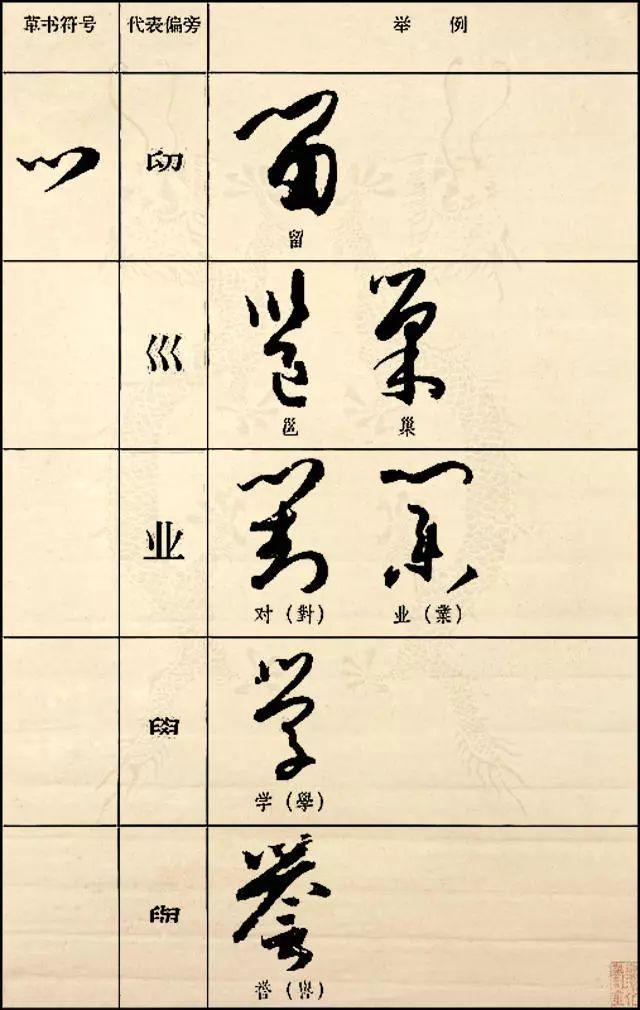 草书符号 代表偏旁 举例
留
巛
邕 巢
业
对（對） 业（業）
学（學）
（譽）